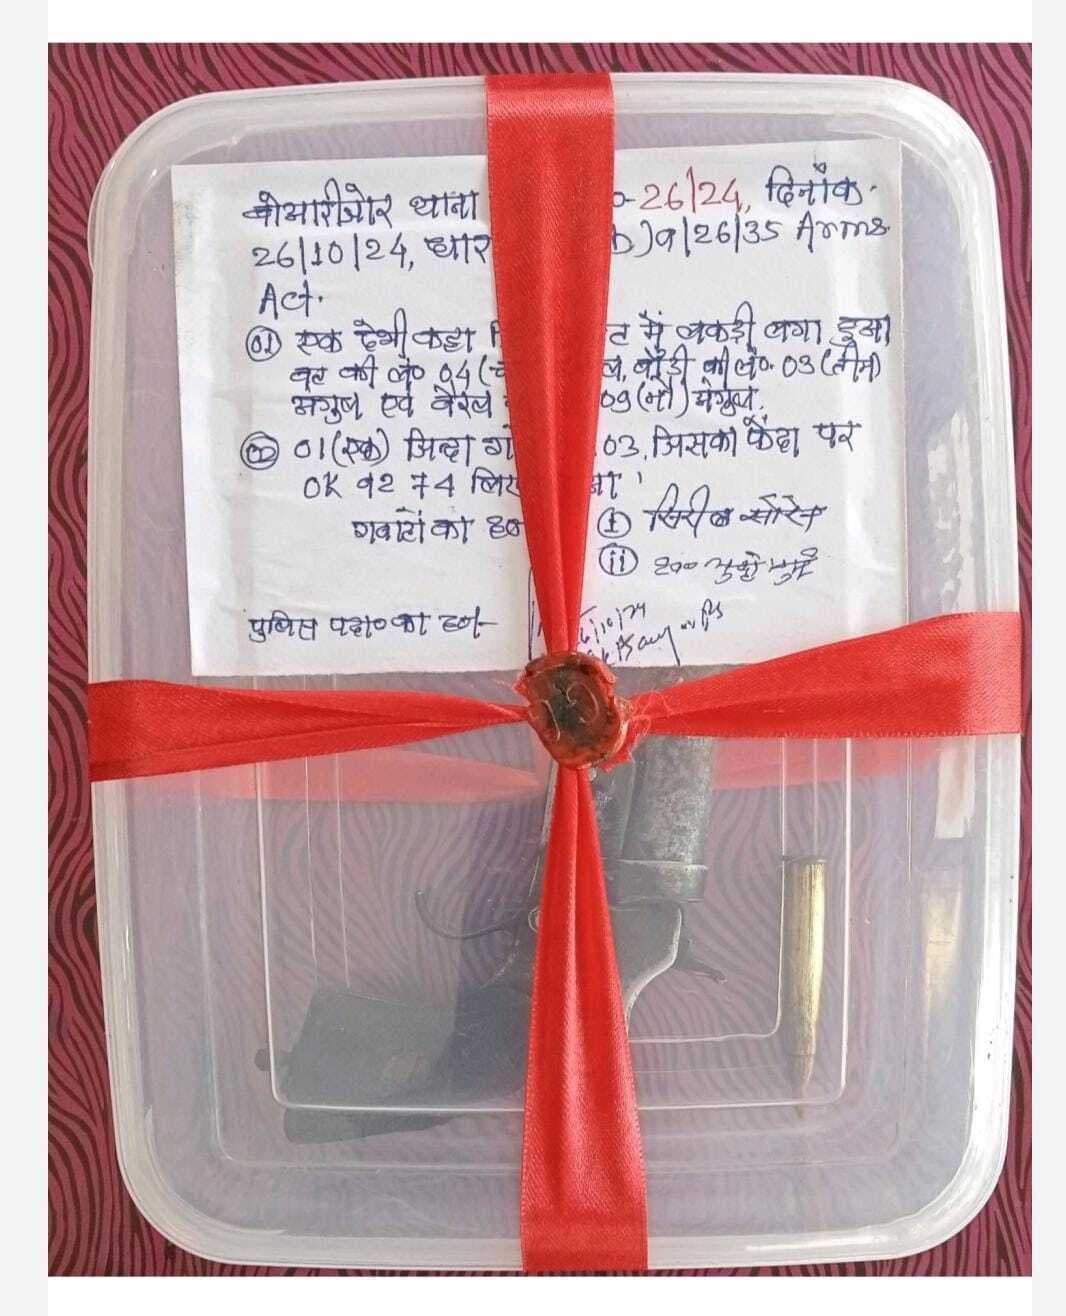 बोआरीजोर थाना 0-26/24, दिनाँक-
26/10/24, धार b)a/26/35 Arms
Act.
01 एक देशी कट्टा ट में लकड़ी लगा हुआ
बट की लं० 04 ( ल, बॉडी की लं० 03 (तीन)
अंगुल एवं बैरल 09 (नौ) अंगुल,
02 01 (एक) जिन्दा ग 03, जिसका पेंदा पर
OK 92 74 लिख
गवाहों का ह०
i सिरील सोरेन
ii
पुलिस पदा० का ह०-
6/10/24